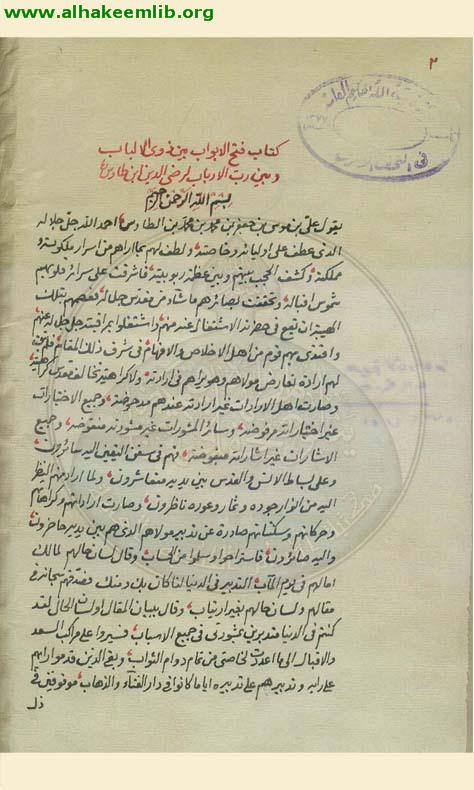 www.alhakeemlib.org
٢
كتاب فتح الابواب بين ذوى الالباب
وبين رب الارباب لرضى الدين ابن طاوس
بسم الله الرحمن الرحيم
يقول على بن موسى بن جعفر بن محمد بن محمد بن الطاوس احمد الله جل جلاله
الذى عطف على اوليائه وخاصته ولطف لهم بما اراهم من اسرار ملكوته و
مملكته وكشف الحجب بينهم وبين عظمة ربوبيته فاشرقت على سرائر قلوبهم
شموس اقباله وتحققت بصائرهم ما شاء من مقدس جلاله فعصمهم بتلك
الهيبة ان يقع فى حضرته الاشتغال عنه منهم واشتغلوا بمراقبته جل جلاله عنهم
واقتدى بهم قوم من اهل الاخلاص والافهام فى شرف ذلك المقام فلم يبق
لهم ارادة تعارض مولاهم وهو يراهم فى ارادته ولا كراهية تخالف مقدس كراهيته
وصارت اهل الارادات غير ارادته عندهم مدحوضة وجميع الاختيارات
غير اختياراته مرفوضة وسائر المشورات غير مشورته منقوضة وجميع
الاشارات غير اشاراته مبغوضة فهم فى سفن اليقين اليه سائرون
وعلى بساط الانس والقدس بين يديه متعاشرون ولما اراد منهم النظر
اليه من انوار جوده وثمار وعوده ناظرون وصارت اراداتهم وكراهاتهم
وحركاتهم وسكناتهم صادرة عن تدبير مولاهم الذى هم بين يديه حاضرون
واليه صائرون فاستراحوا وسلموا من الحساب وقال لسان حالهم لمالك
امالهم فى يوم المآب التدبير فى الدنيا لنا كان بك ومنك فصدقهم سبحانه فى
مقالهم ولسان حالهم بغير ارتياب وقال ببيان المقال او لسان الحال لقد
كنتم فى الدنيا متدبرين بمشورتى فى جميع الاسباب فسيروا على مراكب السعد
والاقبال الى ما اعددت لخاصتى من تمام دوام الثواب وبقى الذين قدموا رايهم
على رايه وتدبيرهم على تدبيره اياما كانوا فى دار الفناء والذهاب موقوفين فى
ذل